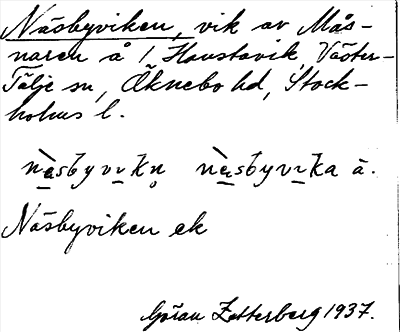 Näsbyviken, vik av Mås-
naren å / Hanstavik, Väster-
Tälje sn, Öknebo hd, Stock-
holms l.
nä̀sbyvıkn̥ nä̀sbyvıka ä.
Näsbyviken ek
Göran Zetterberg 1937.